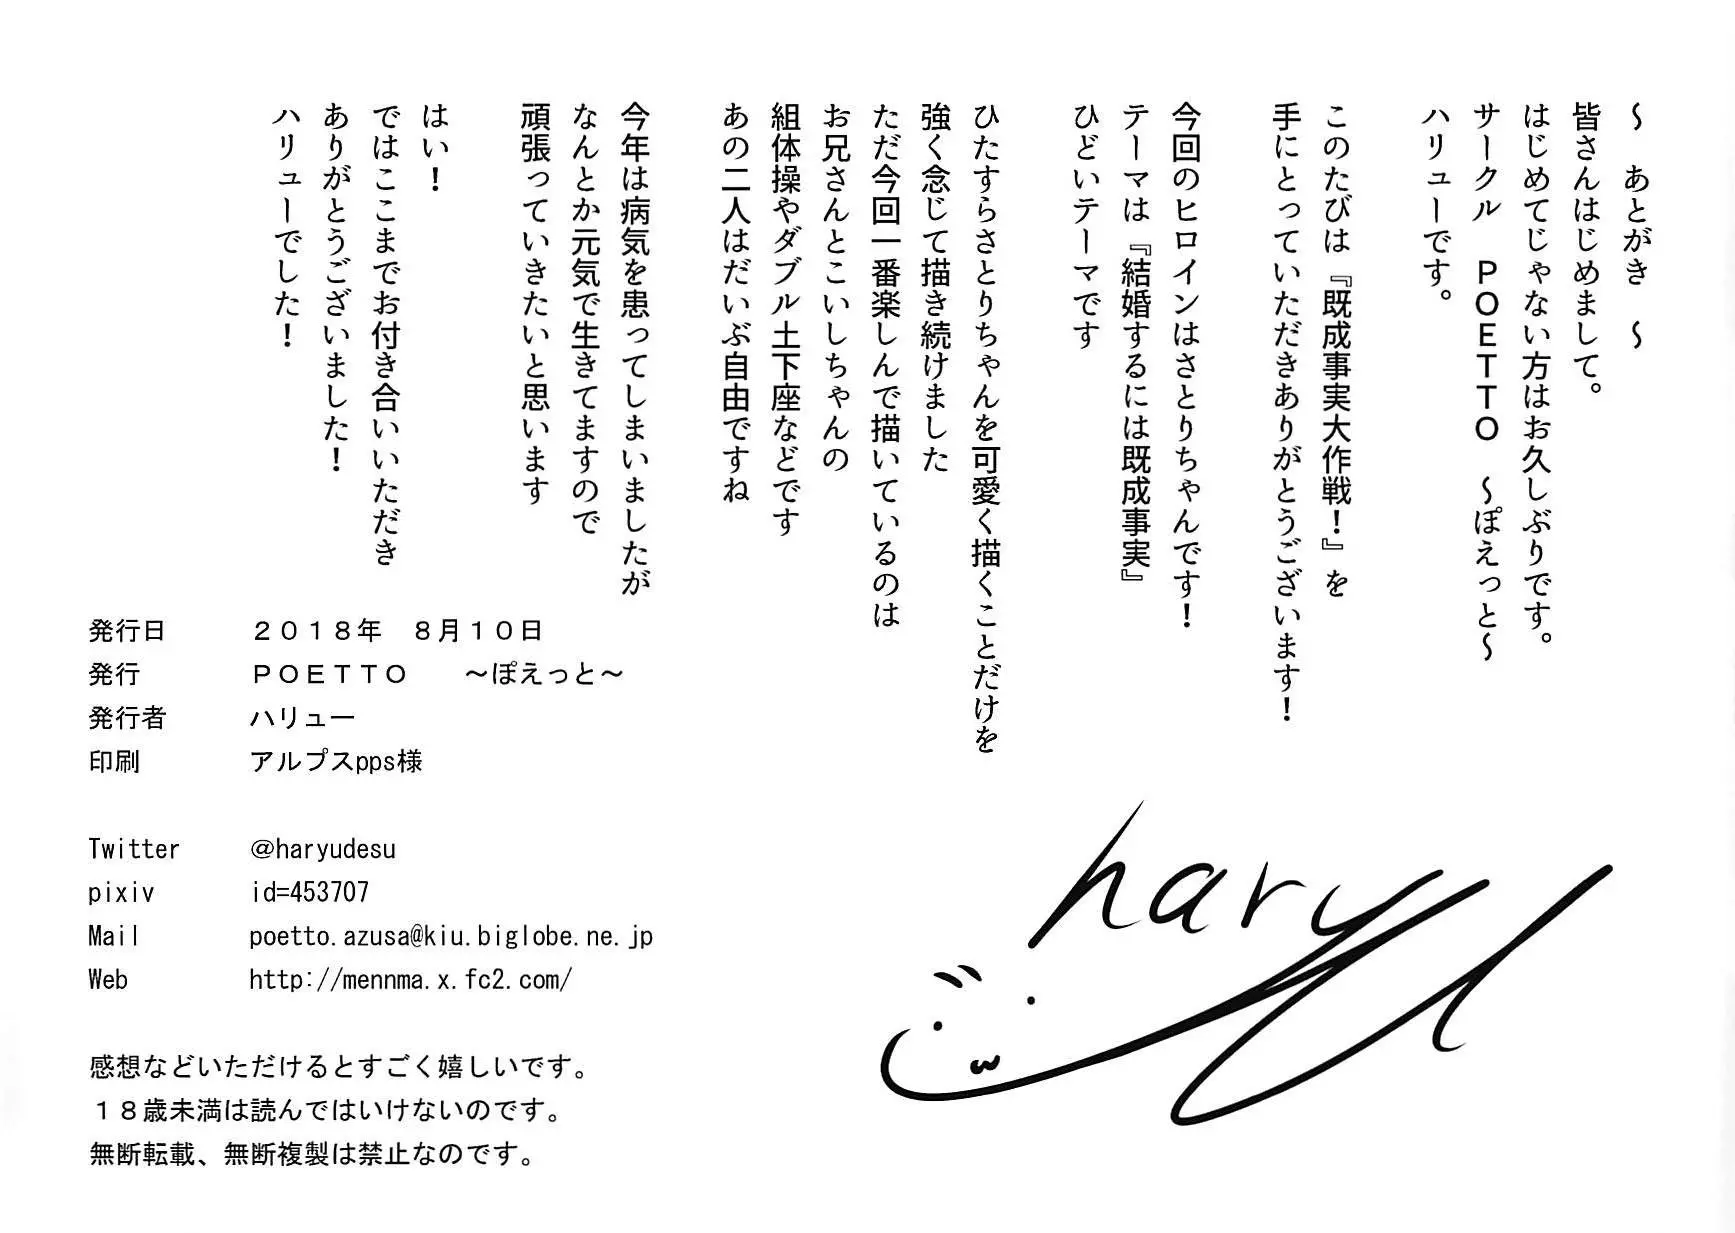 ～　あとがき　～
皆さんはじめまして。
はじめてじゃない方はお久しぶりです。
サークル　ＰＯＥＴＴＯ　～ぽえっと～
ハリューです。
このたびは『既成事実大作戦！』を
手にとっていただきありがとうございます！
今回のヒロインはさとりちゃんです！
テーマは『結婚するには既成事実』
ひどいテーマです
ひたすらさとりちゃんを可愛く描くことだけを
強く念じて描き続けました
ただ今回一番楽しんで描いているのは
お兄さんとこいしちゃんの
組体操やダブル土下座などです
あの二人はだいぶ自由ですね
今年は病気を患ってしまいましたが
なんとか元気で生きてますので
頑張っていきたいと思います
はい！
ではここまでお付き合いいただき
ありがとうございました！
ハリューでした！
発行日　２０１８年　８月１０日
発行　ＰＯＥＴＴＯ　～ぽえっと～
発行者　ハリュー
印刷　アルプスpps様
Twitter　@haryudesu
pixiv　id=453707
Mail　poetto.azusa@kiu.biglobe.ne.jp
Web　http://mennma.x.fc2.com/
感想などいただけるとすごく嬉しいです。
１８歳未満は読んではいけないのです。
無断転載、無断複製は禁止なのです。
haryu